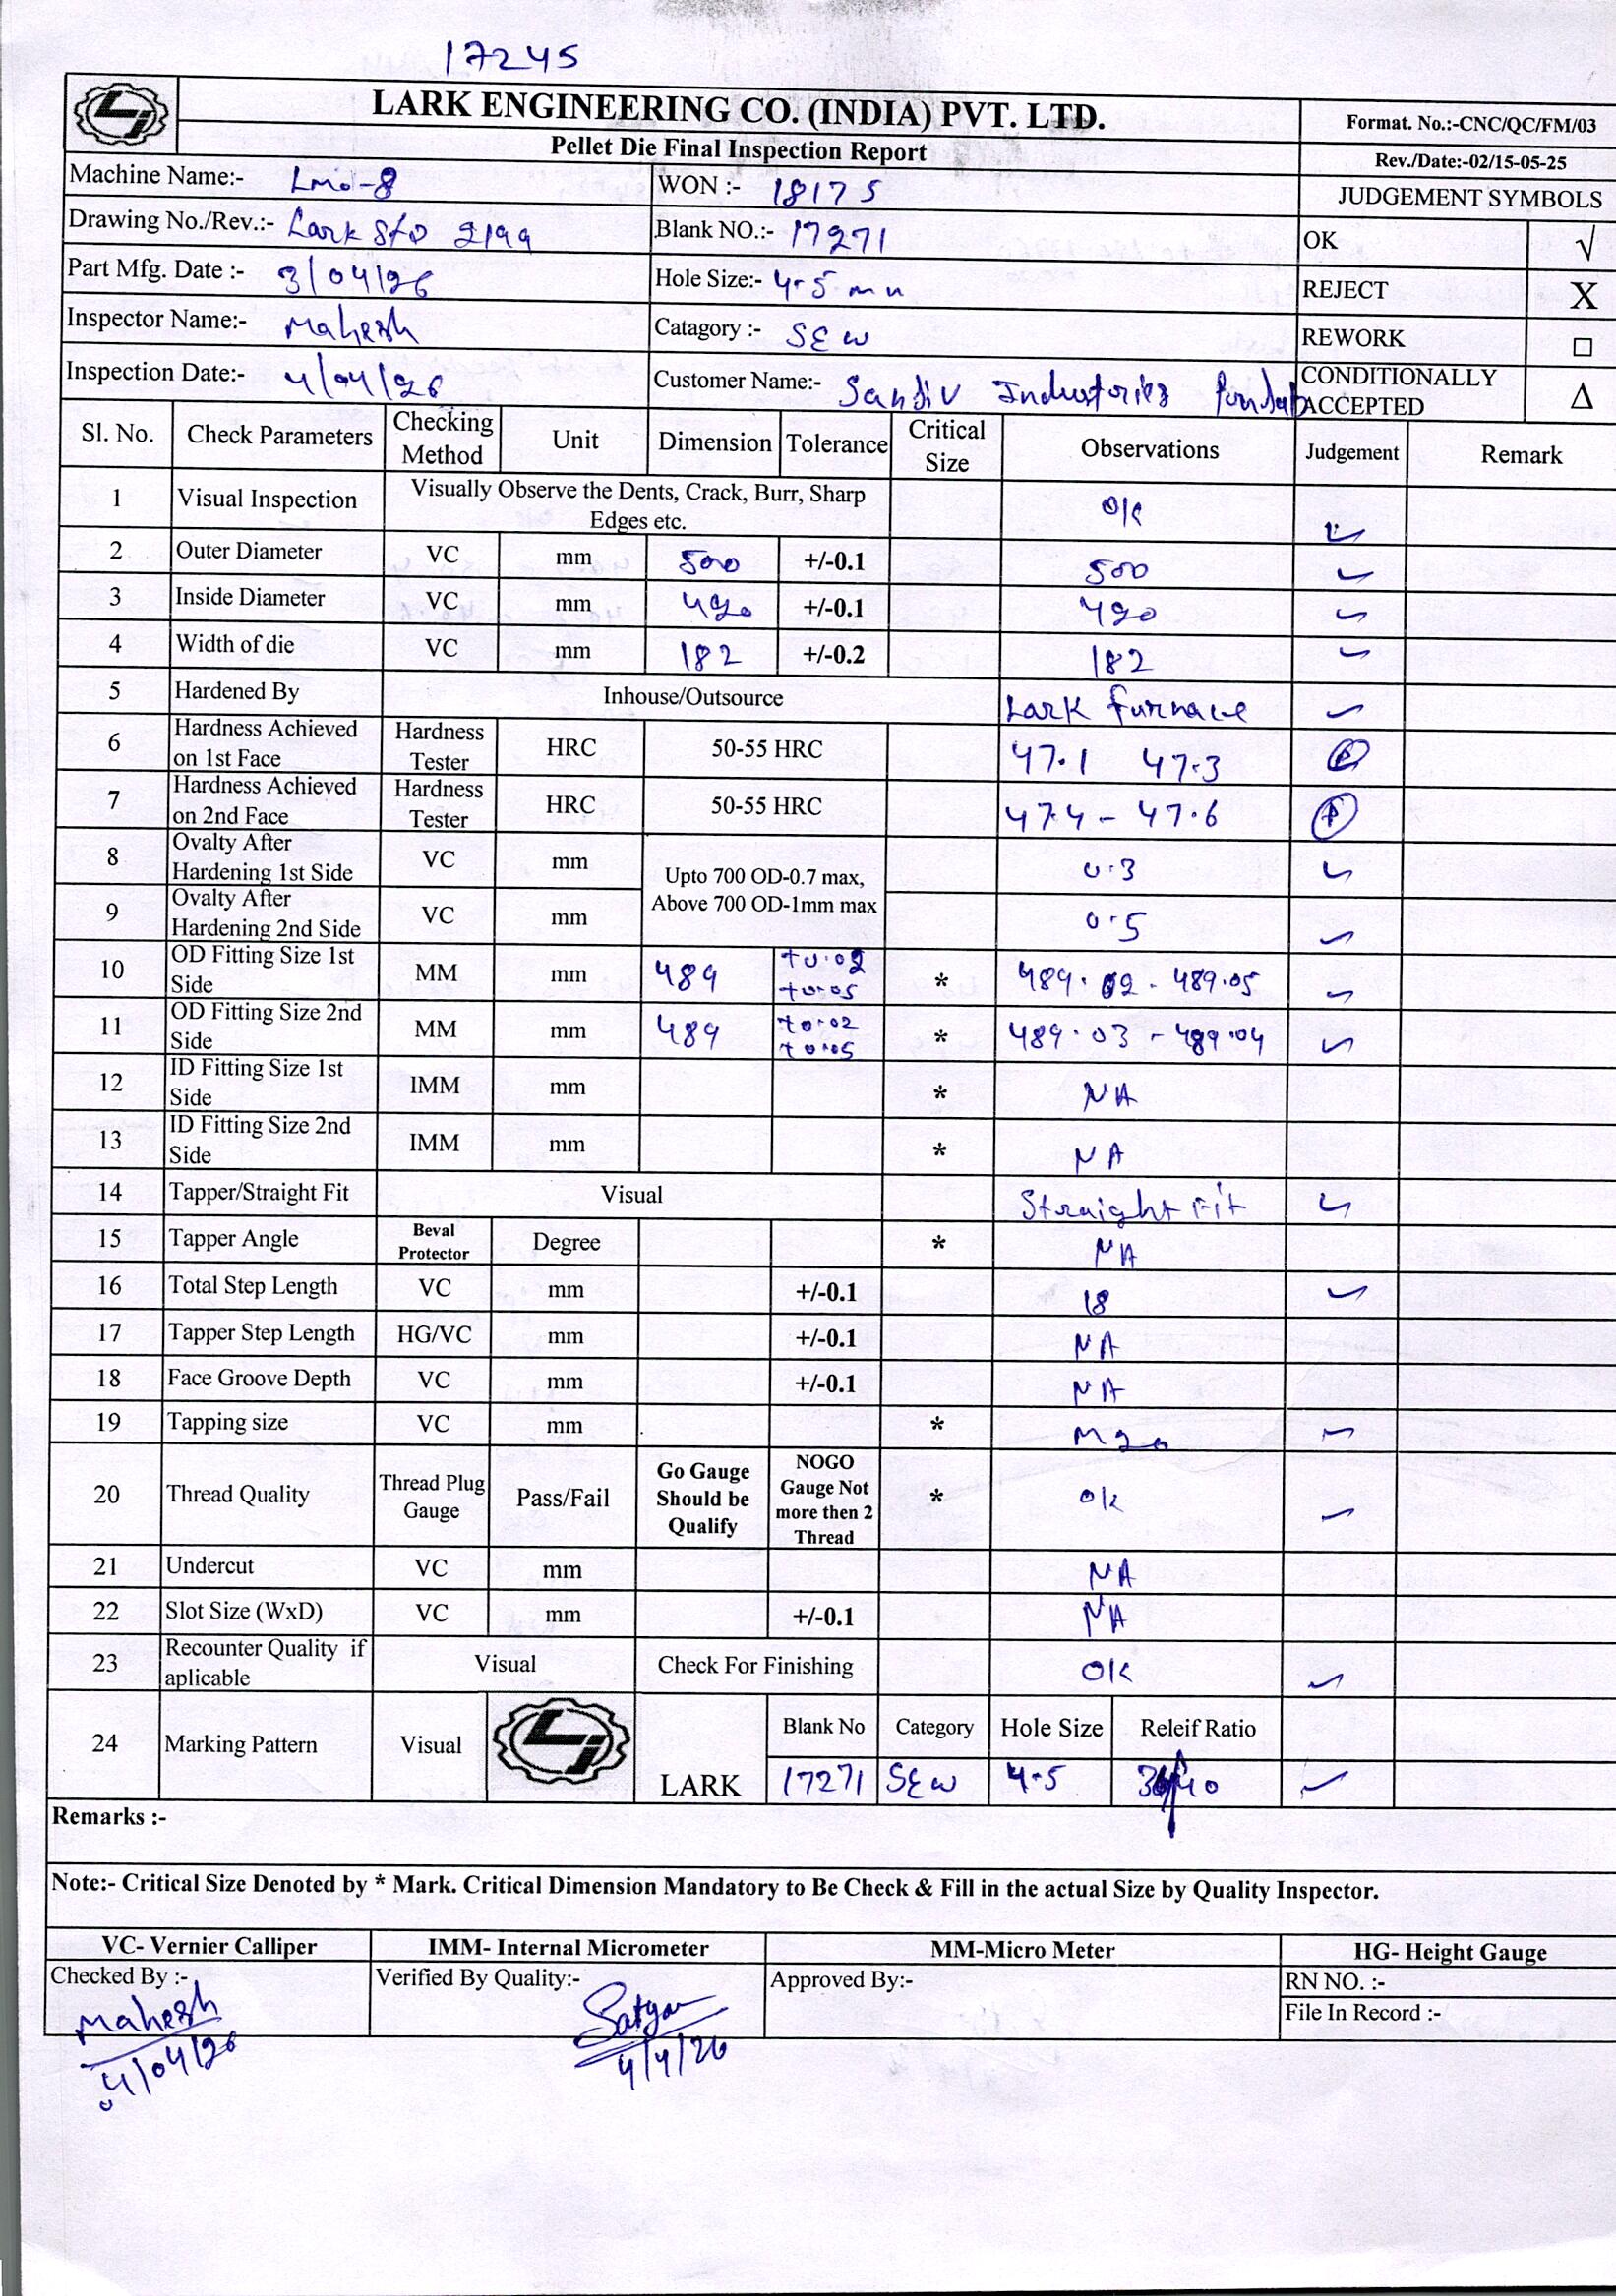 17245
LARK ENGINEERING CO. (INDIA) PVT. LTD.
Format. No.:-CNC/QC/FM/03
Pellet Die Final Inspection Report
Rev./Date:-02/15-05-25
Machine Name:- WON :- 18175 JUDGEMENT SYMBOLS
Drawing No./Rev.:- Lark Std Blank NO.:- 17271 OK √
Part Mfg. Date :- 3/04/26 Hole Size:- 4.5 mm REJECT X
Inspector Name:- Mahesh Catagory :- SEW REWORK □
Inspection Date:- 4/04/26 Customer Name:- Industries CONDITIONALLY ACCEPTED Δ
Sl. No. Check Parameters Checking Method Unit Dimension Tolerance Critical Size Observations Judgement Remark
1 Visual Inspection Visually Observe the Dents, Crack, Burr, Sharp Edges etc. OK ✓
2 Outer Diameter VC mm 500 +/-0.1 500 ✓
3 Inside Diameter VC mm 420 +/-0.1 420 ✓
4 Width of die VC mm 182 +/-0.2 182 ✓
5 Hardened By Inhouse/Outsource Lark furnace ✓
6 Hardness Achieved on 1st Face Hardness Tester HRC 50-55 HRC 47.1 47.3
7 Hardness Achieved on 2nd Face Hardness Tester HRC 50-55 HRC 47.4 - 47.6
8 Ovalty After Hardening 1st Side VC mm Upto 700 OD-0.7 max, Above 700 OD-1mm max 0.3 ✓
9 Ovalty After Hardening 2nd Side VC mm 0.5 ✓
10 OD Fitting Size 1st Side MM mm 489 +0.02 +0.05 * 489.02 - 489.05 ✓
11 OD Fitting Size 2nd Side MM mm 489 +0.02 +0.05 * 489.03 - 489.04 ✓
12 ID Fitting Size 1st Side IMM mm * NA
13 ID Fitting Size 2nd Side IMM mm * NA
14 Tapper/Straight Fit Visual Straight Fit ✓
15 Tapper Angle Beval Protector Degree * NA
16 Total Step Length VC mm +/-0.1 18 ✓
17 Tapper Step Length HG/VC mm +/-0.1 NA
18 Face Groove Depth VC mm +/-0.1 NA
19 Tapping size VC mm * M20 ✓
20 Thread Quality Thread Plug Gauge Pass/Fail Go Gauge Should be Qualify NOGO Gauge Not more then 2 Thread * OK ✓
21 Undercut VC mm NA
22 Slot Size (WxD) VC mm +/-0.1 NA
23 Recounter Quality if aplicable Visual Check For Finishing OK ✓
24 Marking Pattern Visual LARK Blank No Category Hole Size Releif Ratio
17271 SEW 4.5 ✓
Remarks :-
Note:- Critical Size Denoted by * Mark. Critical Dimension Mandatory to Be Check & Fill in the actual Size by Quality Inspector.
VC- Vernier Calliper IMM- Internal Micrometer MM-Micro Meter HG- Height Gauge
Checked By :- Verified By Quality:- Approved By:- RN NO. :-
File In Record :-
Mahesh Satyam
4/04/26 4/4/26